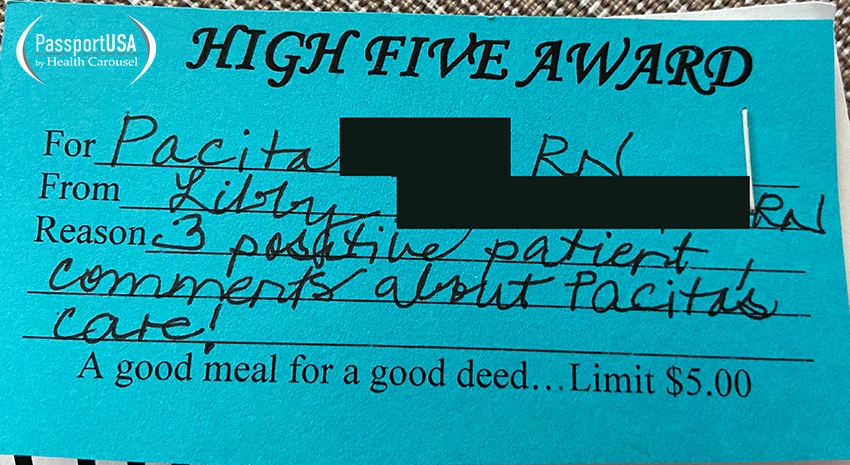 PassportUSA
by Health Carousel
HIGH FIVE AWARD
For Pacita RN
From Libby RN
Reason 3 positive patient
comments about Pacita's
care!
A good meal for a good deed...Limit $5.00